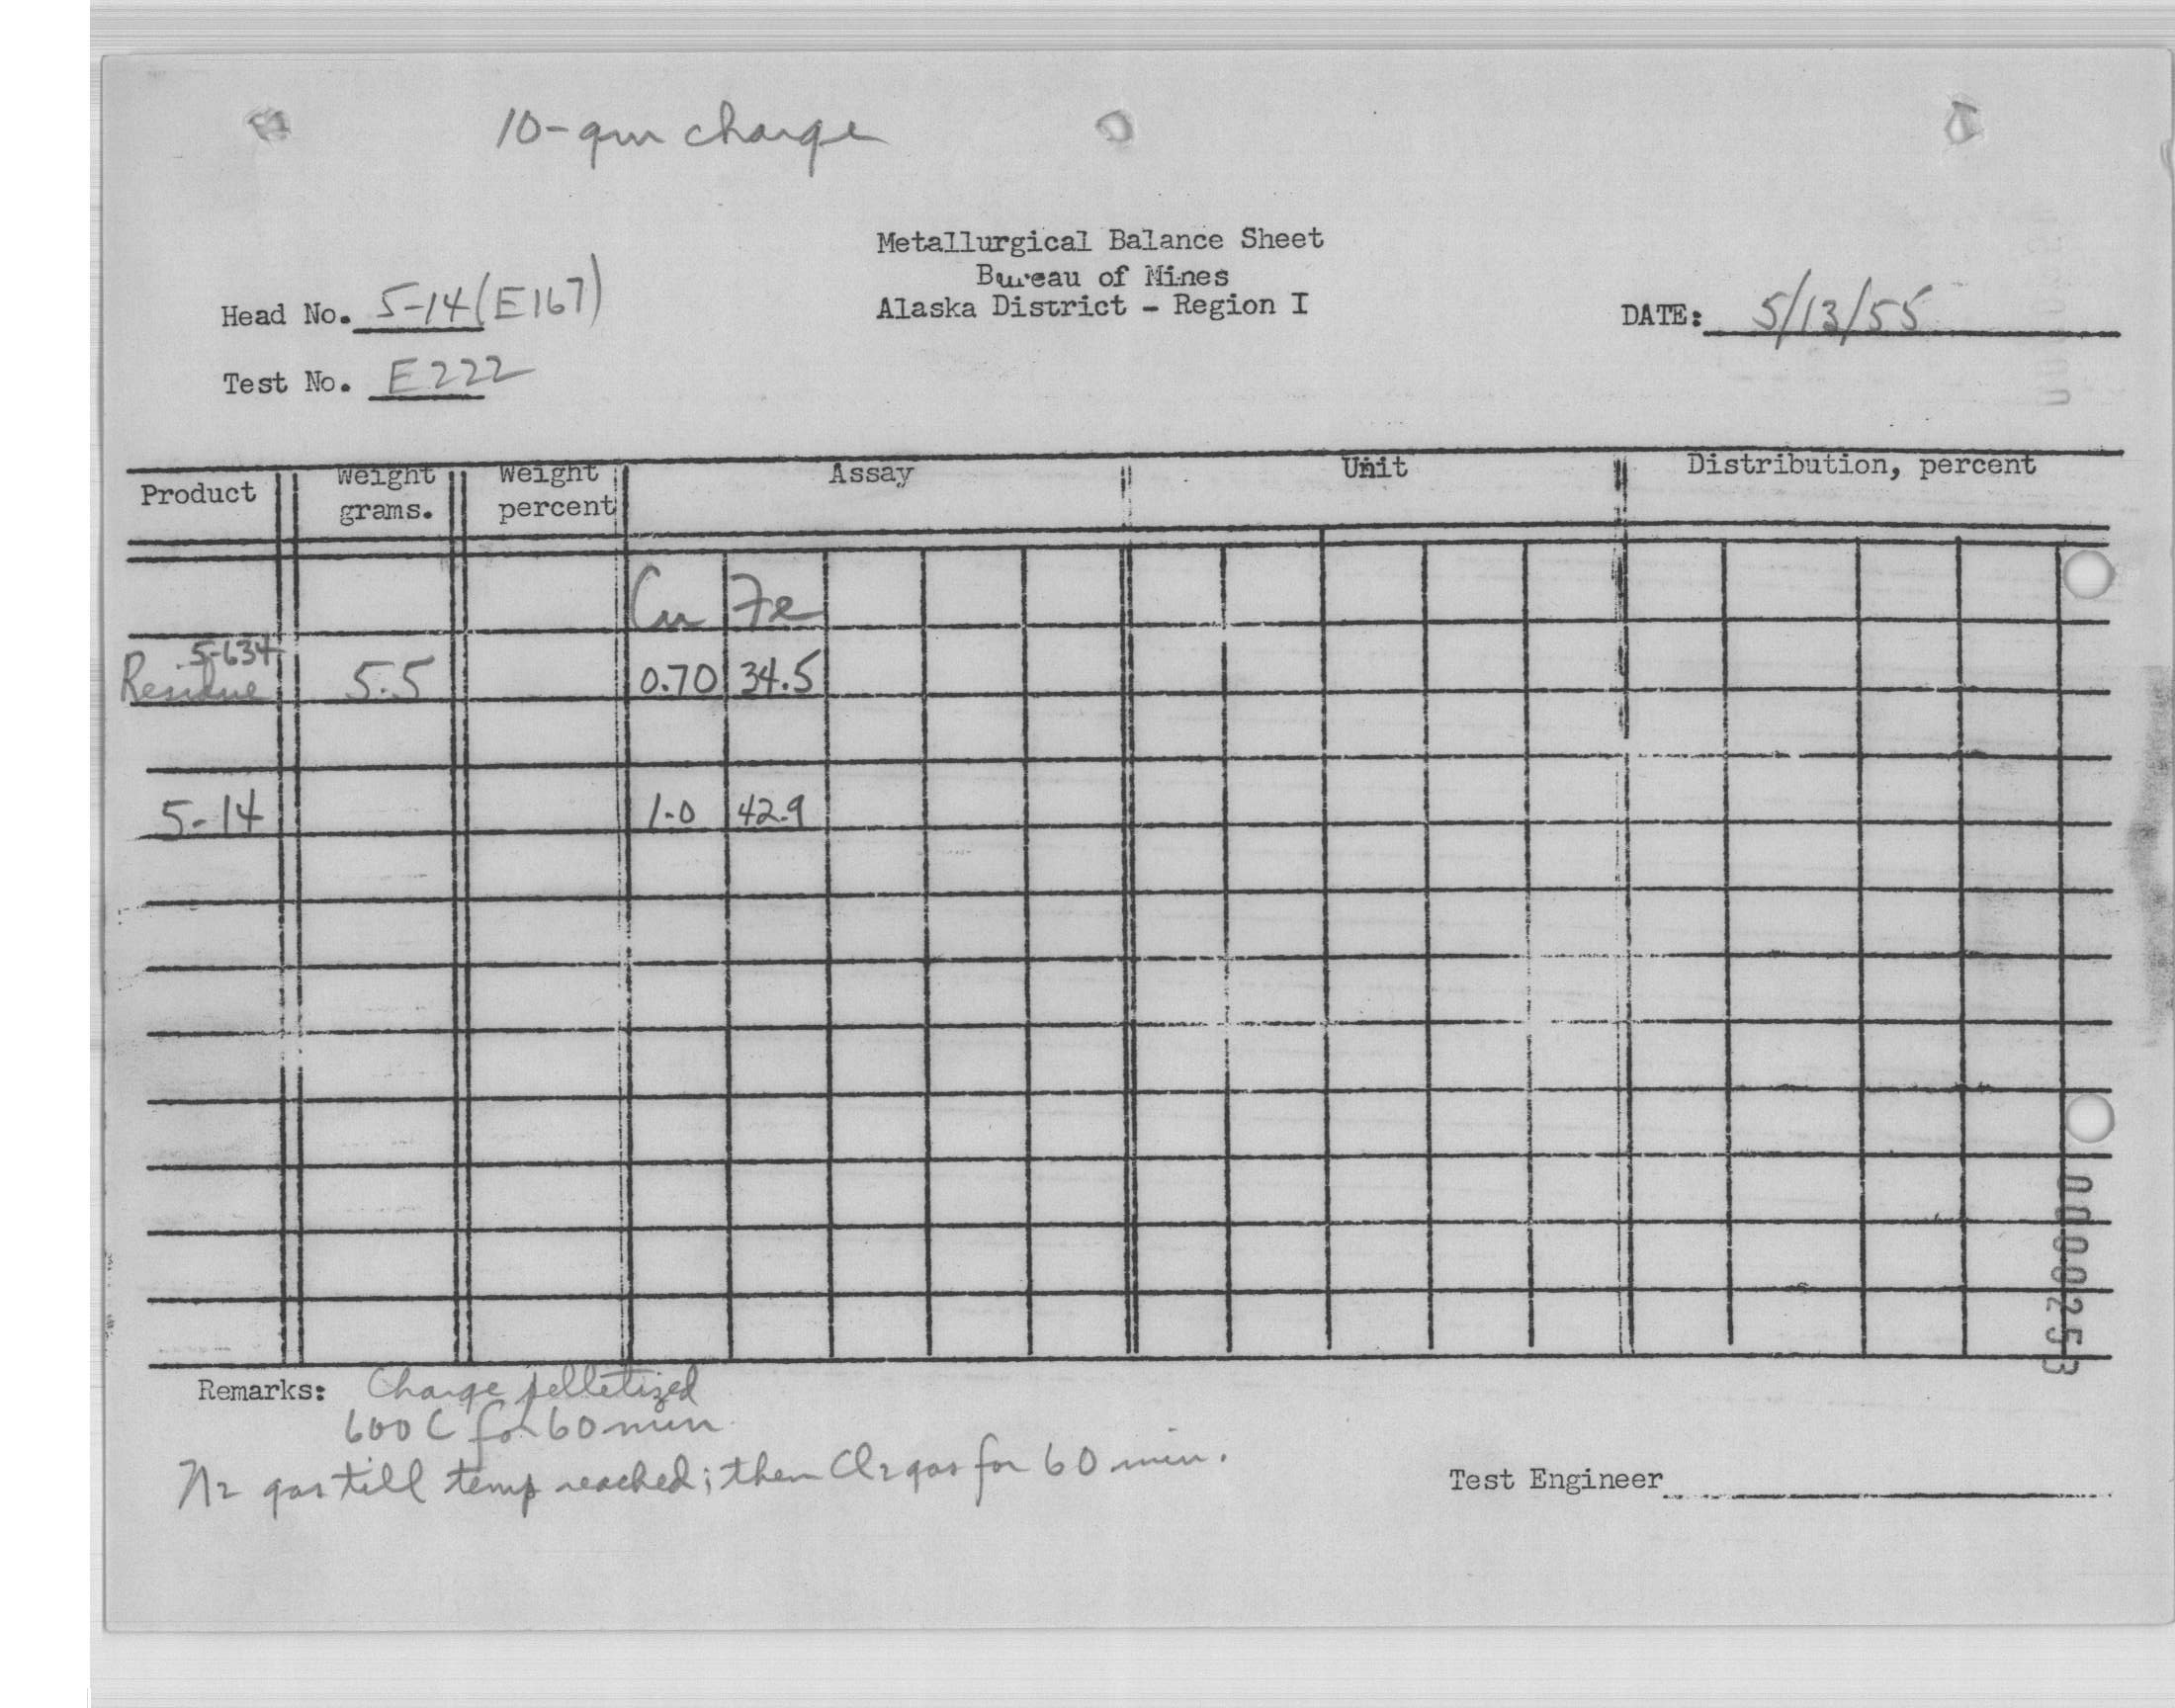 10-gm charge
Metallurgical Balance Sheet
Bureau of Mines
Alaska District - Region I
Head No. 5-14 (E167)
DATE: 5/13/55
Test No. E222
Product Weight grams. Weight percent Assay Unit Distribution, percent
Cu Fe
5-634
Residue 5.5 0.70 34.5
5-14 1.0 42.9
0000253
Remarks: Charge pelletized
600 C for 60 min
N2 gas till temp reached; then Cl2 gas for 60 min.
Test Engineer